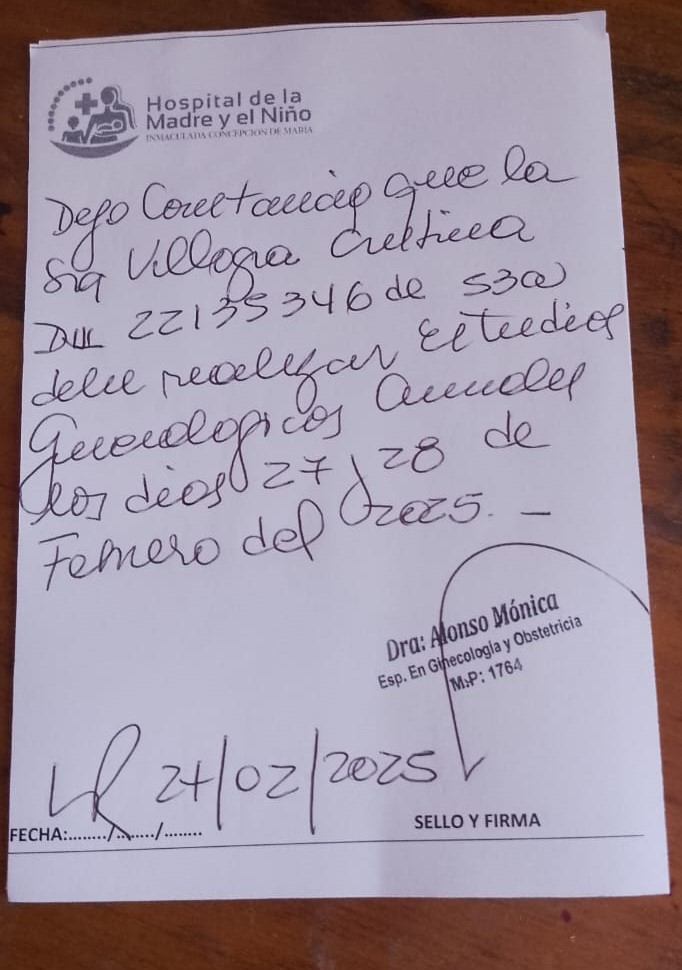 Hospital de la
Madre y el Niño
INMACULADA CONCEPCION DE MARIA
Dejo Constancia que la
Sra Villagra Cristina
DNI 22135346 de 53a
debe realizar Estudios
Ginecologicos Anuales
los dias 27 y 28 de
Febrero del 2025. -
Dra: Alonso Mónica
Esp. En Ginecología y Obstetricia
M.P: 1764
LR 24/02/2025
FECHA:......../......../........
SELLO Y FIRMA